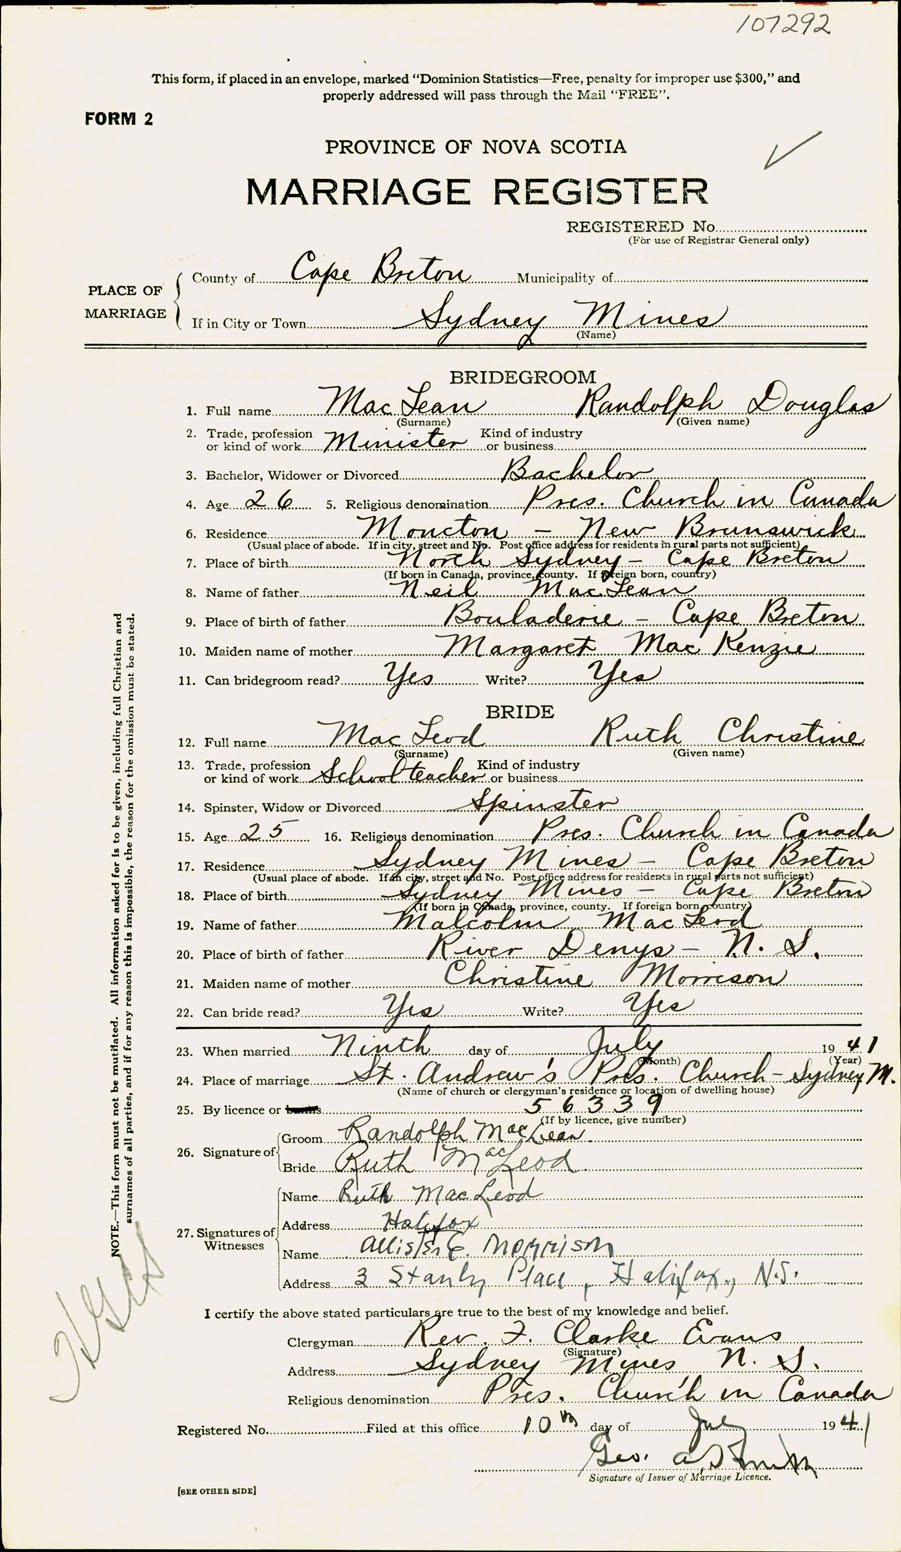 107292
This form, if placed in an envelope, marked "Dominion Statistics—Free, penalty for improper use $300," and
properly addressed will pass through the Mail "FREE".
FORM 2
PROVINCE OF NOVA SCOTIA
MARRIAGE REGISTER
REGISTERED No.
(For use of Registrar General only)
PLACE OF MARRIAGE
County of Cape Breton Municipality of
If in City or Town Sydney Mines
(Name)
BRIDEGROOM
1. Full name MacLean Randolph Douglas
(Surname) (Given name)
2. Trade, profession or kind of work Minister Kind of industry or business
3. Bachelor, Widower or Divorced Bachelor
4. Age 26 5. Religious denomination Pres. Church in Canada
6. Residence Moncton - New Brunswick
(Usual place of abode. If in city, street and No. Post office address for residents in rural parts not sufficient)
7. Place of birth North Sydney - Cape Breton
(If born in Canada, province, county. If foreign born, country)
8. Name of father Neil MacLean
9. Place of birth of father Bouladerie - Cape Breton
10. Maiden name of mother Margaret MacKenzie
11. Can bridegroom read? Yes Write? Yes
BRIDE
12. Full name MacLeod Ruth Christine
(Surname) (Given name)
13. Trade, profession or kind of work School teacher Kind of industry or business
14. Spinster, Widow or Divorced Spinster
15. Age 25 16. Religious denomination Pres. Church in Canada
17. Residence Sydney Mines - Cape Breton
(Usual place of abode. If in city, street and No. Post office address for residents in rural parts not sufficient)
18. Place of birth Sydney Mines - Cape Breton
(If born in Canada, province, county. If foreign born, country)
19. Name of father Malcolm MacLeod
20. Place of birth of father River Denys - N. S.
21. Maiden name of mother Christine Morrison
22. Can bride read? Yes Write? Yes
23. When married Ninth day of July 1941
(Month) (Year)
24. Place of marriage St. Andrew's Pres. Church - Sydney M.
(Name of church or clergyman's residence or location of dwelling house)
25. By licence or 56339
(If by licence, give number)
26. Signature of
Groom Randolph MacLean.
Bride Ruth MacLeod.
27. Signatures of Witnesses
Name Ruth MacLeod
Address Halifax
Name Allister E. Morrison
Address 3 Stanley Place, Halifax, N.S.
I certify the above stated particulars are true to the best of my knowledge and belief.
Clergyman Rev. F. Clarke Evans
(Signature)
Address Sydney Mines N. S.
Religious denomination Pres. Church in Canada
Registered No. Filed at this office 10th day of July 1941
Geo. A.
Signature of Issuer of Marriage Licence.
[SEE OTHER SIDE]
NOTE.—This form must not be mutilated. All information asked for is to be given, including full Christian and
surnames of all parties, and if for any reason this is impossible, the reason for the omission must be stated.